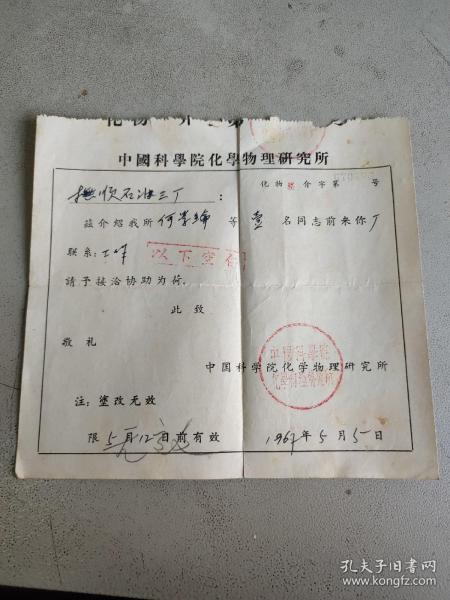 中國科學院化學物理研究所
化物 介字第 號
撫順石油三厂：
茲介绍我所何学纶等壹名同志前来你厂
联系：工作
以下空白
請予接洽协助为荷。
此致
敬礼
中国科学院化学物理研究所
中国科學院
化學物理研究所
注：塗改无效
限5月12日前有效
1967年5月5日
孔夫子旧书网
www.kongfz.com